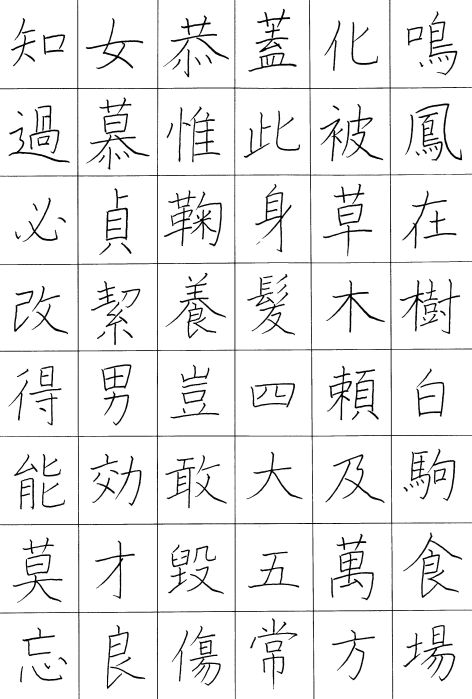 鳴鳳在樹白駒食場
化被草木頼及萬方
蓋此身髪四大五常
恭惟鞠養豈敢毀傷
女慕貞絜男効才良
知過必改得能莫忘